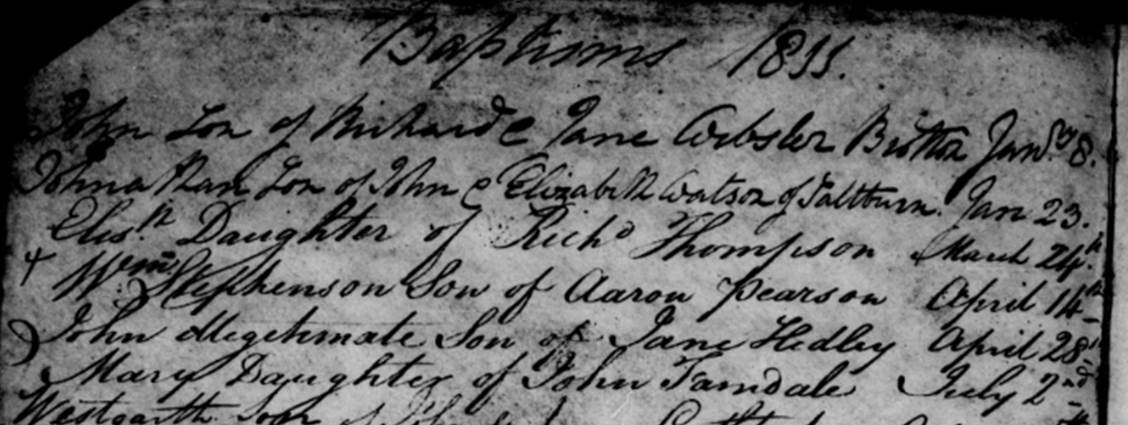 Baptisms 1811.
John Son of Richard & Jane Webster Brotton Jan.ry 8.
Johnathan Son of John & Elizabeth Watson of Saltburn. Jan 23.
Elis.th Daughter of Rich.d Thompson March 24.th
+ W.m Stephenson Son of Aaron Pearson April 14th
John Illegitimate Son of Jane Hedley April 28th
Mary Daughter of John Tamdale July 2nd
Westgarth Son of John